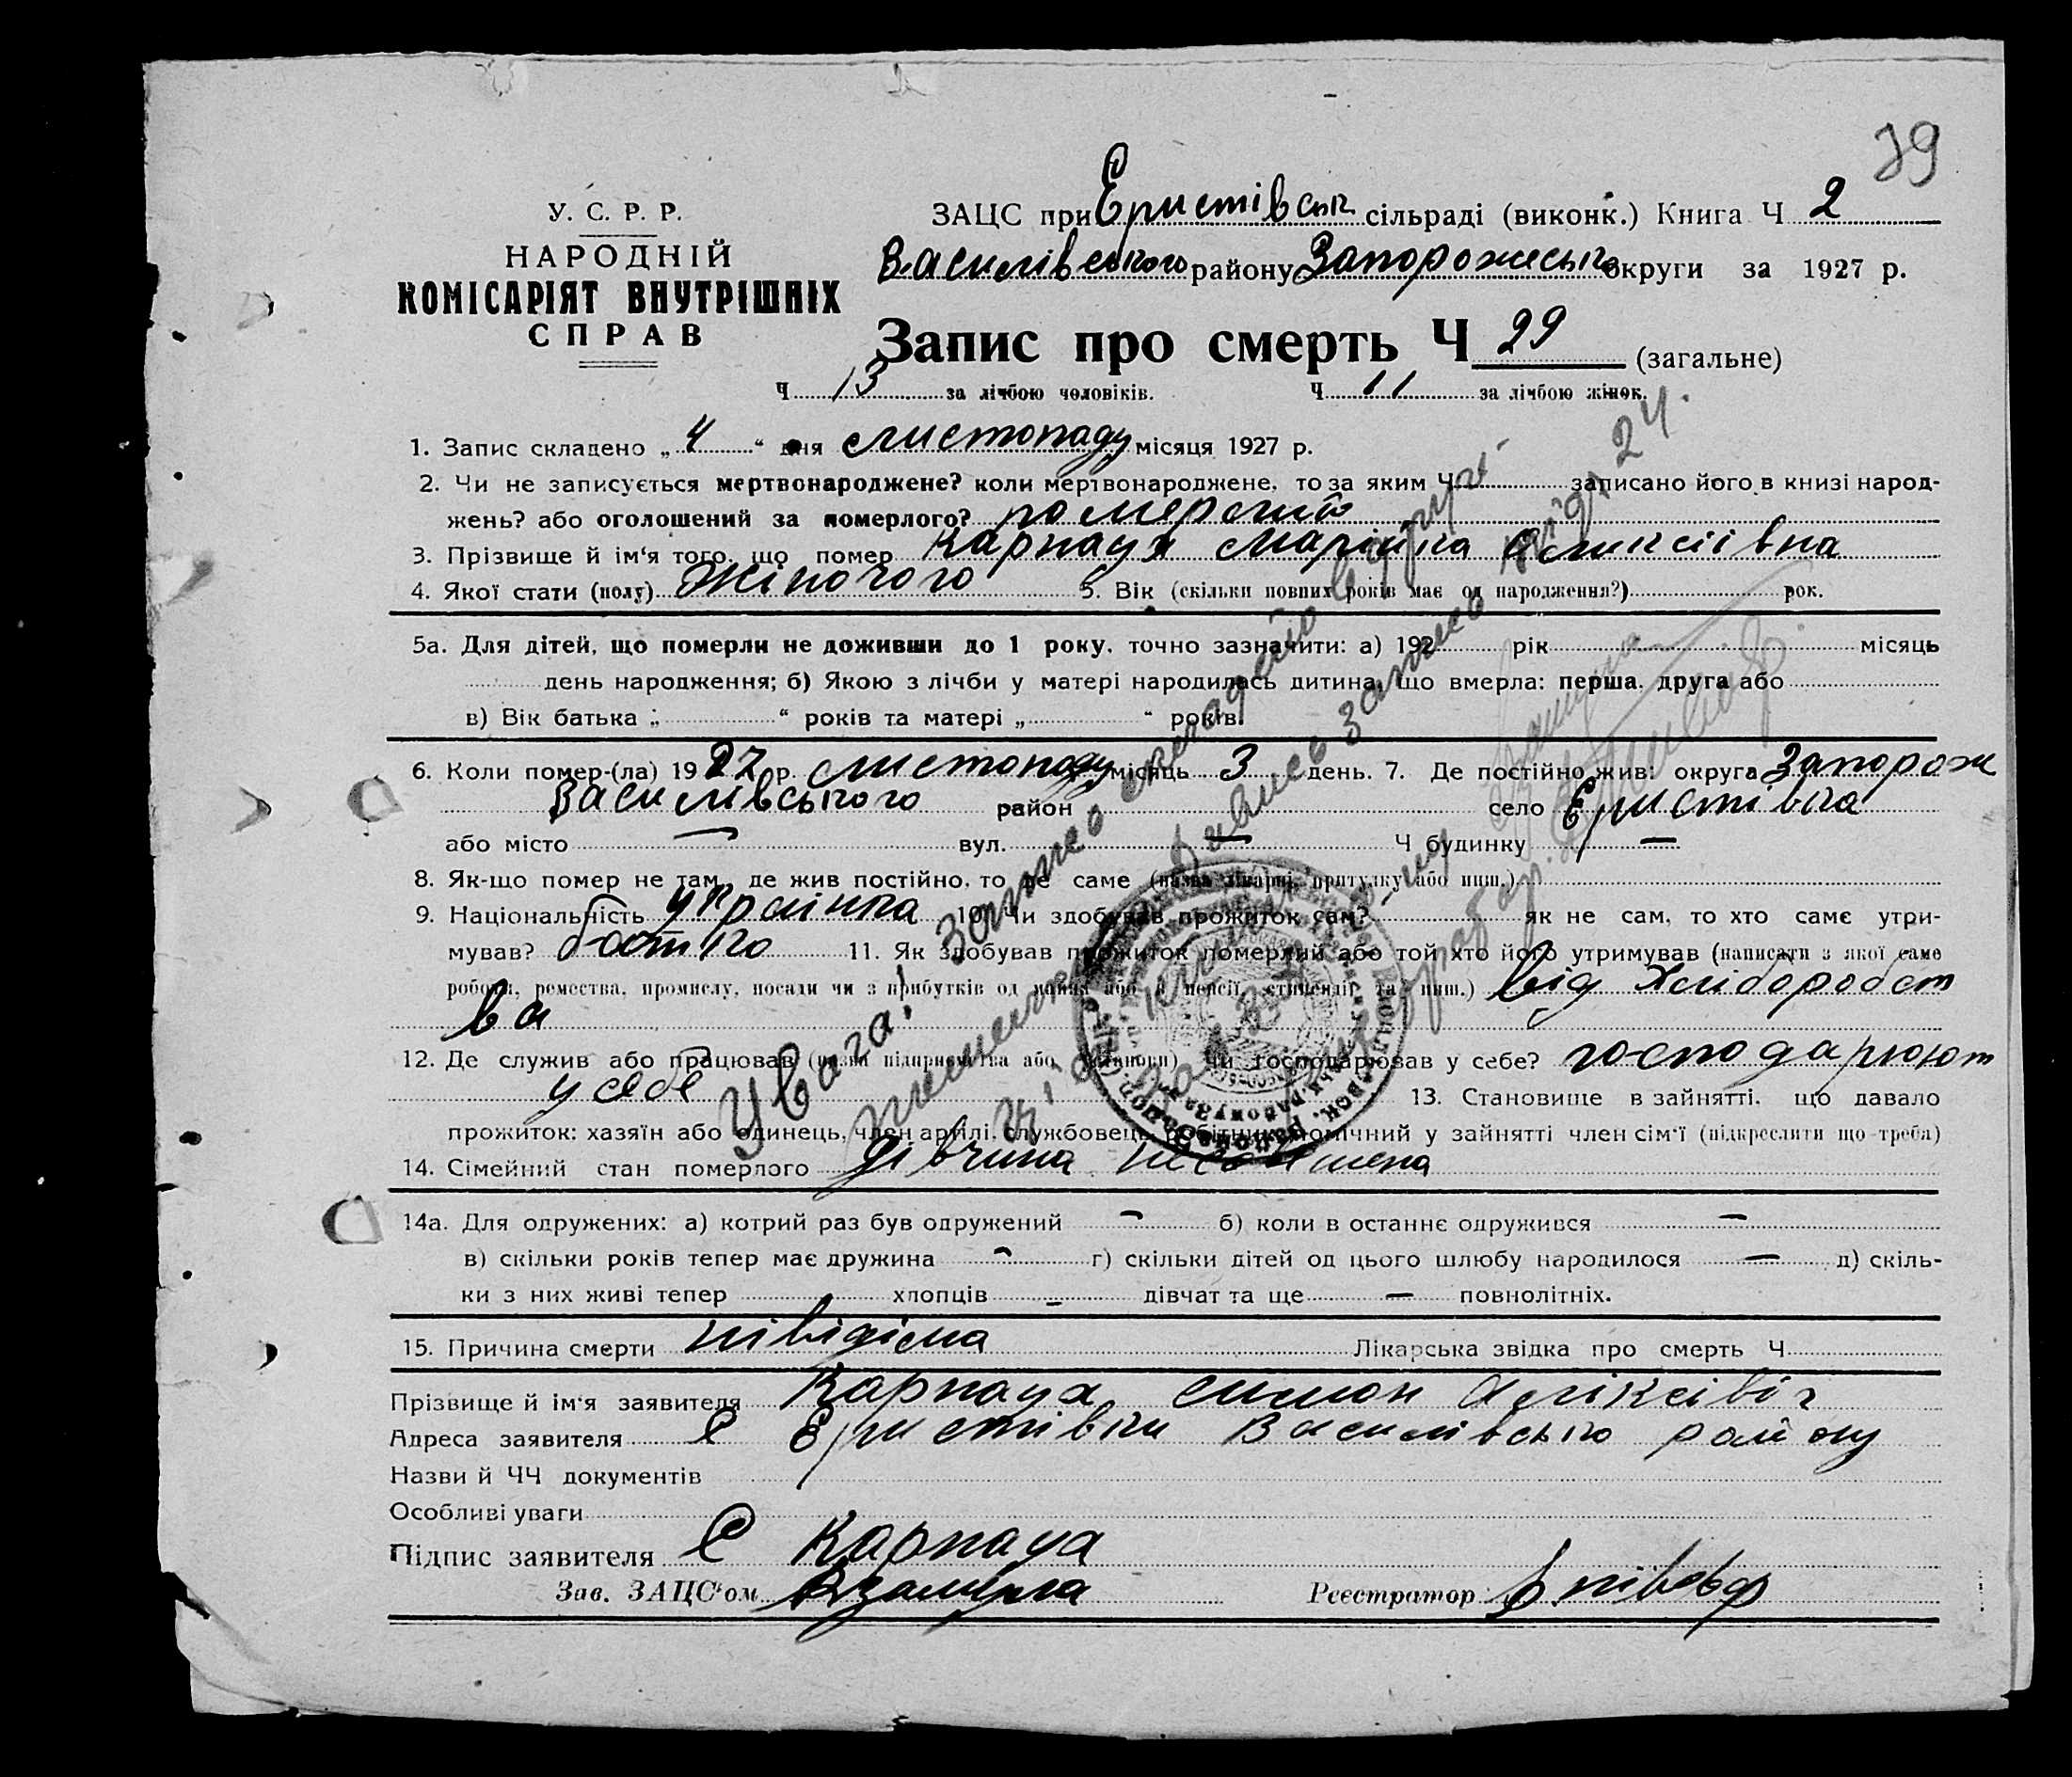 39
У. С. Р. Р.
НАРОДНІЙ
КОМІСАРІЯТ ВНУТРІШНІХ
СПРАВ
ЗАЦС при Еристівськ сільраді (виконк.) Книга Ч 2
Василівського району Запорожеськ округи за 1927 р.
Запис про смерть Ч 29 (загальне)
Ч 13 за лічбою чоловіків. Ч 11 за лічбою жінок.
1. Запис складено „ 4 “ дня листопаду місяця 1927 р.
2. Чи не записується мертвонароджене? коли мертвонароджене, то за яким Ч записано його в книзі народ-
жень? або оголошений за померлого?
3. Прізвище й ім'я того, що помер Карпаух Марійка
4. Якої стати (полу) жіночого 5. Вік (скільки повних років має од народження?) рок.
5а. Для дітей, що померли не доживши до 1 року, точно зазначити: а) 192 рік місяць
день народження; б) Якою з лічби у матері народилась дитина, що вмерла: перша, друга або
в) Вік батька „ “ років та матері „ “ років.
6. Коли помер-(ла) 1927 р. листопаду місяць 3 день. 7. Де постійно жив: округа Запорож
Василівського район село Еристівка
або місто — вул. — Ч будинку —
8. Як-що помер не там, де жив постійно, то де саме (назва лікарні, притулку або инш.)
9. Національність українка 10. Чи здобував прожиток сам? як не сам, то хто саме утри-
мував? батько 11. Як здобував прожиток померлий або той хто його утримував (написати з якої саме
роботи, ремества, промислу, посади чи з прибутків од майна або з пенсії, стипендії та инш.) від хліборобст
ва
12. Де служив або працював (назва підприємства або установи) чи господарював у себе? господарюют
у себе 13. Становище в зайнятті, що давало
прожиток: хазяїн або одинець, член артілі, службовець, робітник, помічний у зайнятті член сім'ї (підкреслити що треба)
14. Сімейний стан померлого дівчина
14а. Для одружених: а) котрий раз був одружений — б) коли в останнє одружився —
в) скільки років тепер має дружина — г) скільки дітей од цього шлюбу народилося — д) скіль-
ки з них живі тепер хлопців — дівчат та ще — повнолітніх.
15. Причина смерти нівідіма Лікарська звідка про смерть Ч
Прізвище й ім'я заявителя Карпауха Симон Аліксівіч
Адреса заявителя С Еристівки Василівсько району
Назви й ЧЧ документів
Особливі уваги
Підпис заявителя С Карпауа
Зав. ЗАЦС'ом Реєстратор
Увага! Запис складено вдруге
Дивись запис під 24.